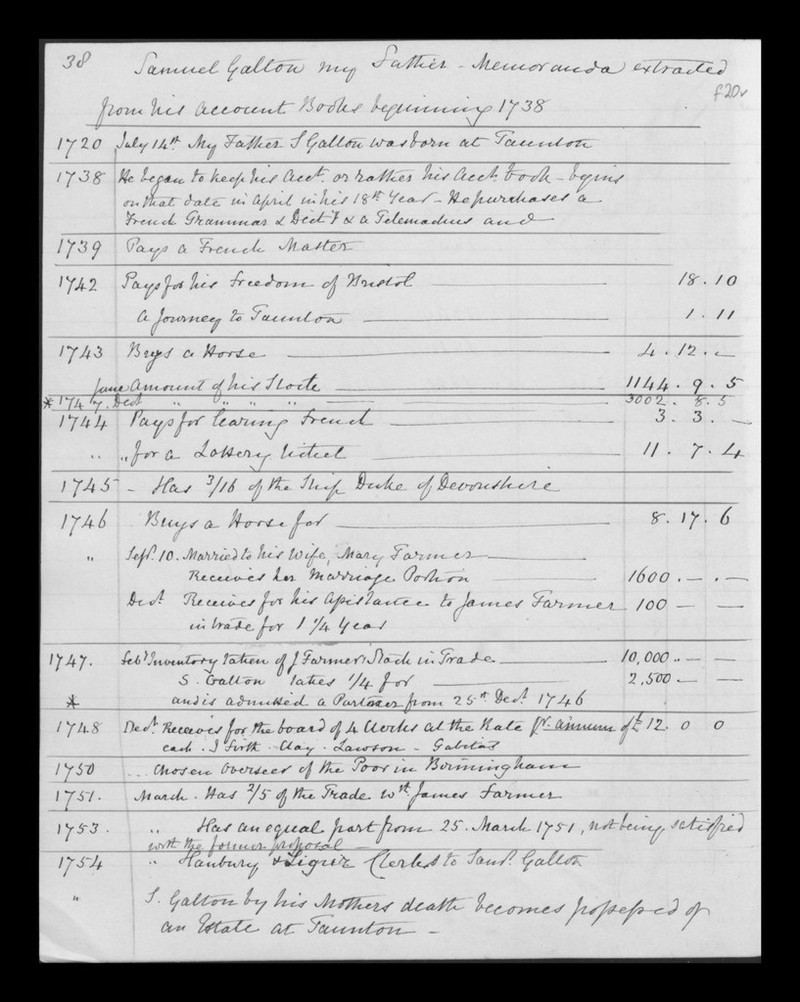 38 Samuel Galton my Father - Memoranda extracted
f20v
from his account Books beginning 1738
1720 July 14th My Father S Galton was born at Taunton
1738 He began to keep his Acct. or rather his Acct. book - begins
on that date in April in his 18th Year - He purchases a
French Grammar & Dicty & a Telemachus and
1739 Pays a French Master
1742 Pays for his Freedom of Bristol 18. 10
a Journey to Taunton 1. 11
1743 Buys a Horse 4. 12. -
June Amount of his Stock 1144. 9. 5
* 1747. Decr " " " " 3002. 8. 5
1744 Pays for learning French 3. 3. -
" " for a Lottery ticket 11. 7. 4
1745 - Has 3/16 of the Ship Duke of Devonshire
1746 Buys a Horse for 8. 17. 6
" Sepr. 10. Married to his Wife, Mary Farmer
Receives her Marriage Portion 1600. - . -
Decr. Receives for his Assistance to James Farmer 100 - -
in trade for 1 1/4 Year
1747. Feby Inventory taken of J Farmers Stock in Trade 10,000 .. - -
S. Galton takes 1/4 for 2,500 - -
* and is admitted a Partner from 25th Decr. 1746
1748 Decr. Receives for the board of 4 Clerks at the Rate pr. annum of £12. 0 0
each. J Firth. Clay. Lawson -
1750 ... Chosen Overseer of the Poor in Birmingham
1751. March. Has 2/5 of the Trade wth. James Farmer
1753. " Has an equal part from 25. March 1751, not being satisfied
with the former proposal -
1754 " Hanbury & Clerks to Saml. Galton
" S. Galton by his Mothers death becomes possessed of
an Estate at Taunton -